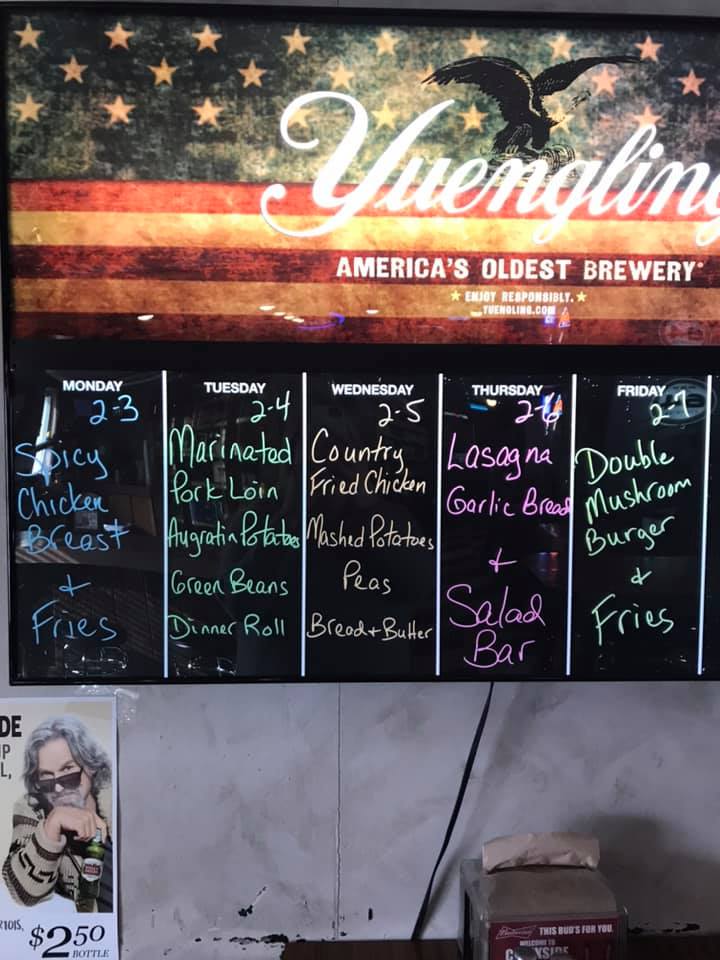 Yuengling
AMERICA'S OLDEST BREWERY
ENJOY RESPONSIBLY.
YUENGLING.COM
MONDAY
2-3
Spicy
Chicken
Breast
+
Fries
TUESDAY
2-4
Marinated
Pork Loin
Augratin Potatoes
Green Beans
Dinner Roll
WEDNESDAY
2-5
Country
Fried Chicken
Mashed Potatoes
Peas
Bread + Butter
THURSDAY
2-6
Lasagna
Garlic Bread
+
Salad
Bar
FRIDAY
2-7
Double
Mushroom
Burger
+
Fries
DE
IP
L,
RTOIS,
$2.50
BOTTLE
Budweiser THIS BUD'S FOR YOU.
WELCOME TO